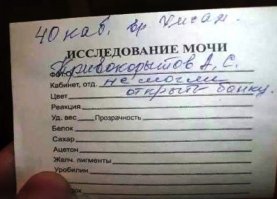 40 каб. вр Унсан.
ИССЛЕДОВАНИЕ МОЧИ
Ф.И.О. Кривокорытов А. С.
Кабинет, отд. не могли
Цвет открыть банку.
Реакция
Уд. вес Прозрачность
Белок
Сахар
Ацетон
Желч. пигменты
Уробилин